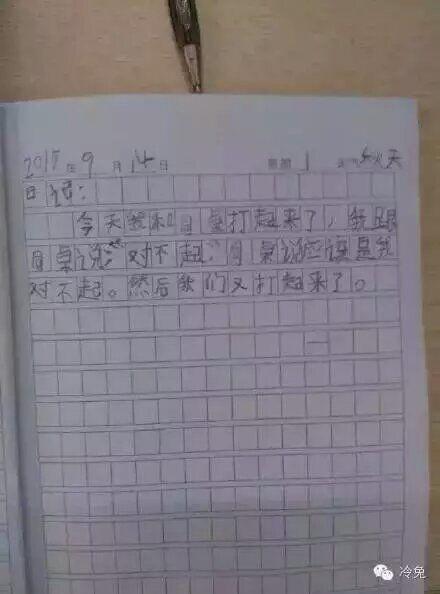 2015年9月14日 星期1 天气秋天
日记：
今天我和同桌打起来了，我跟
同桌说：“对不起”同桌说应该是我
对不起。然后我们又打起来了。
冷兔